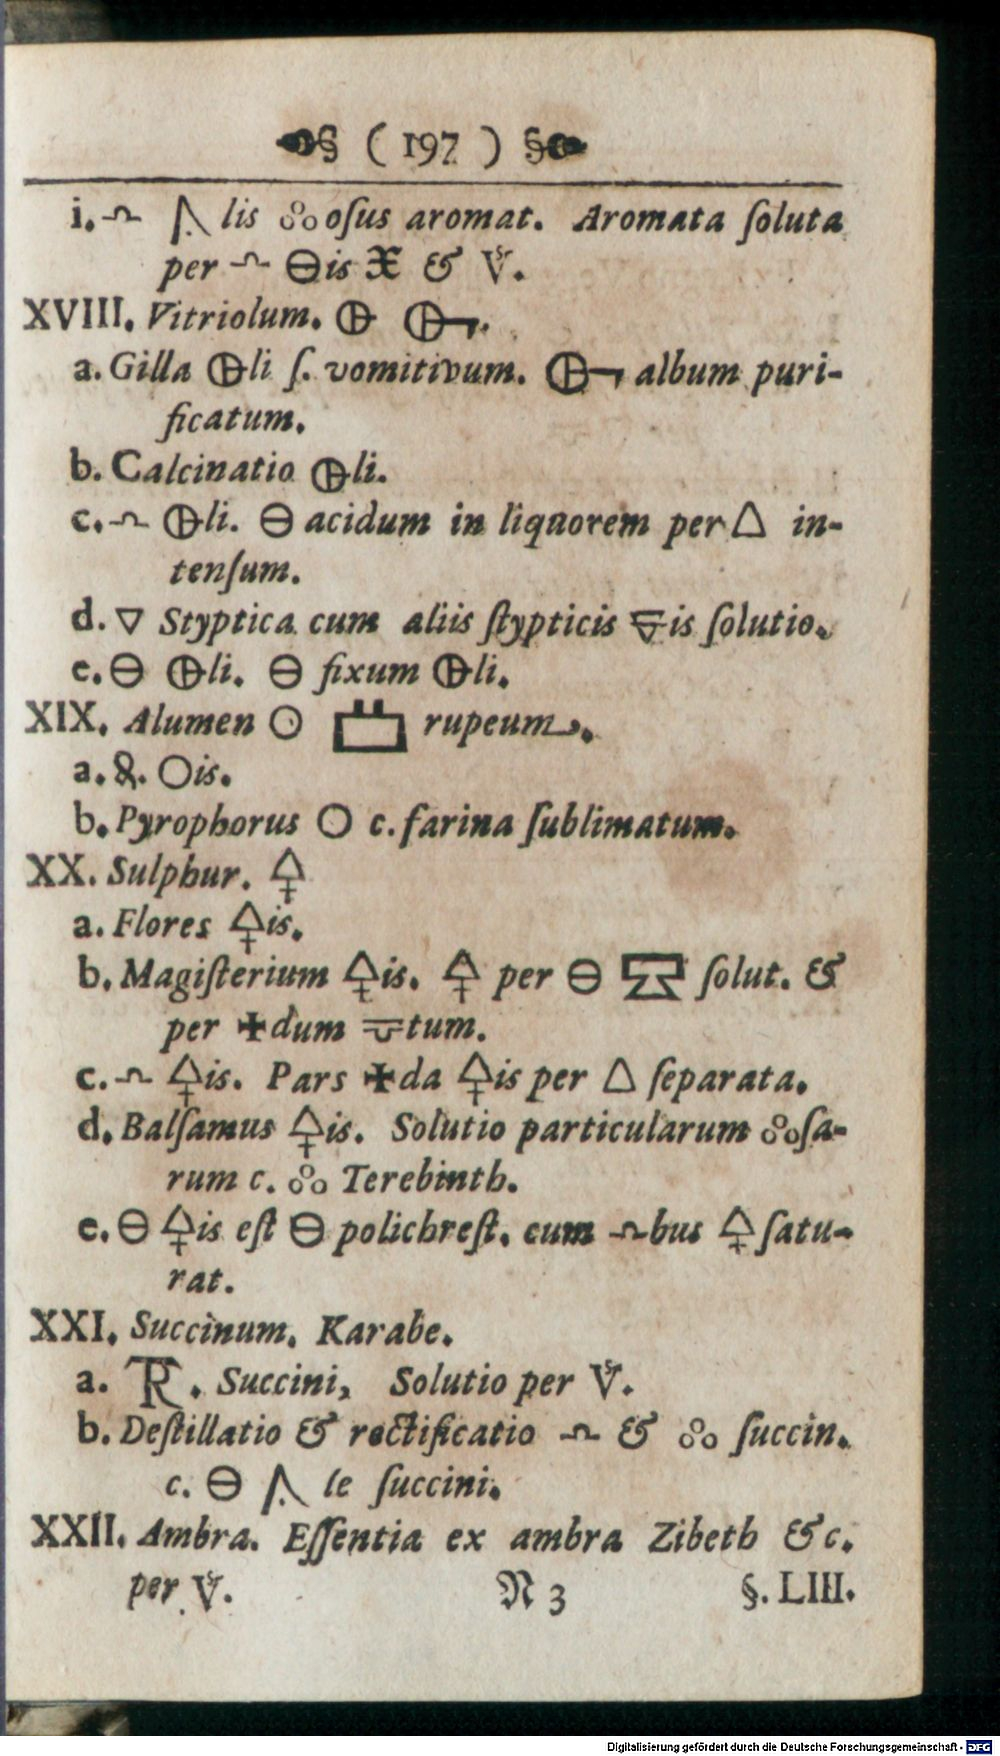 § ( 197 ) §
i. lis 🝆osus aromat. Aromata ſoluta
per 🜔is & .
XVIII. Vitriolum. 🜖
a. Gilla 🜖li ſ. vomitivum. album puri-
ficatum.
b. Calcinatio 🜖li.
c. 🜖li. 🜔 acidum in liquorem per 🜂 in-
tenſum.
d. 🜄 Styptica cum aliis ſtypticis is ſolutio.
e. 🜔 🜖li. 🜔 fixum 🜖li.
XIX. Alumen ☉ rupeum.
a. &. ◯is.
b. Pyrophorus ◯ c. farina ſublimatum.
XX. Sulphur. 🜍
a. Flores 🜍is.
b. Magiſterium 🜍is. 🜍 per 🜔 ſolut. &
per ✠dum tum.
c. 🜍is. Pars ✠da 🜍is per 🜂 ſeparata.
d. Balſamus 🜍is. Solutio particularum 🝆ſa-
rum c. 🝆 Terebinth.
e. 🜔 🜍is eſt 🜔 polichreſt. cum bus 🜍 ſatu-
rat.
XXI. Succinum. Karabe.
a. . Succini, Solutio per .
b. Deſtillatio & rectificatio & 🝆 ſuccin.
c. 🜔 le ſuccini.
XXII. Ambra. Eſſentia ex ambra Zibeth &c.
per .
N 3 §. LIII.
Digitalisierung gefördert durch die Deutsche Forschungsgemeinschaft - DFG